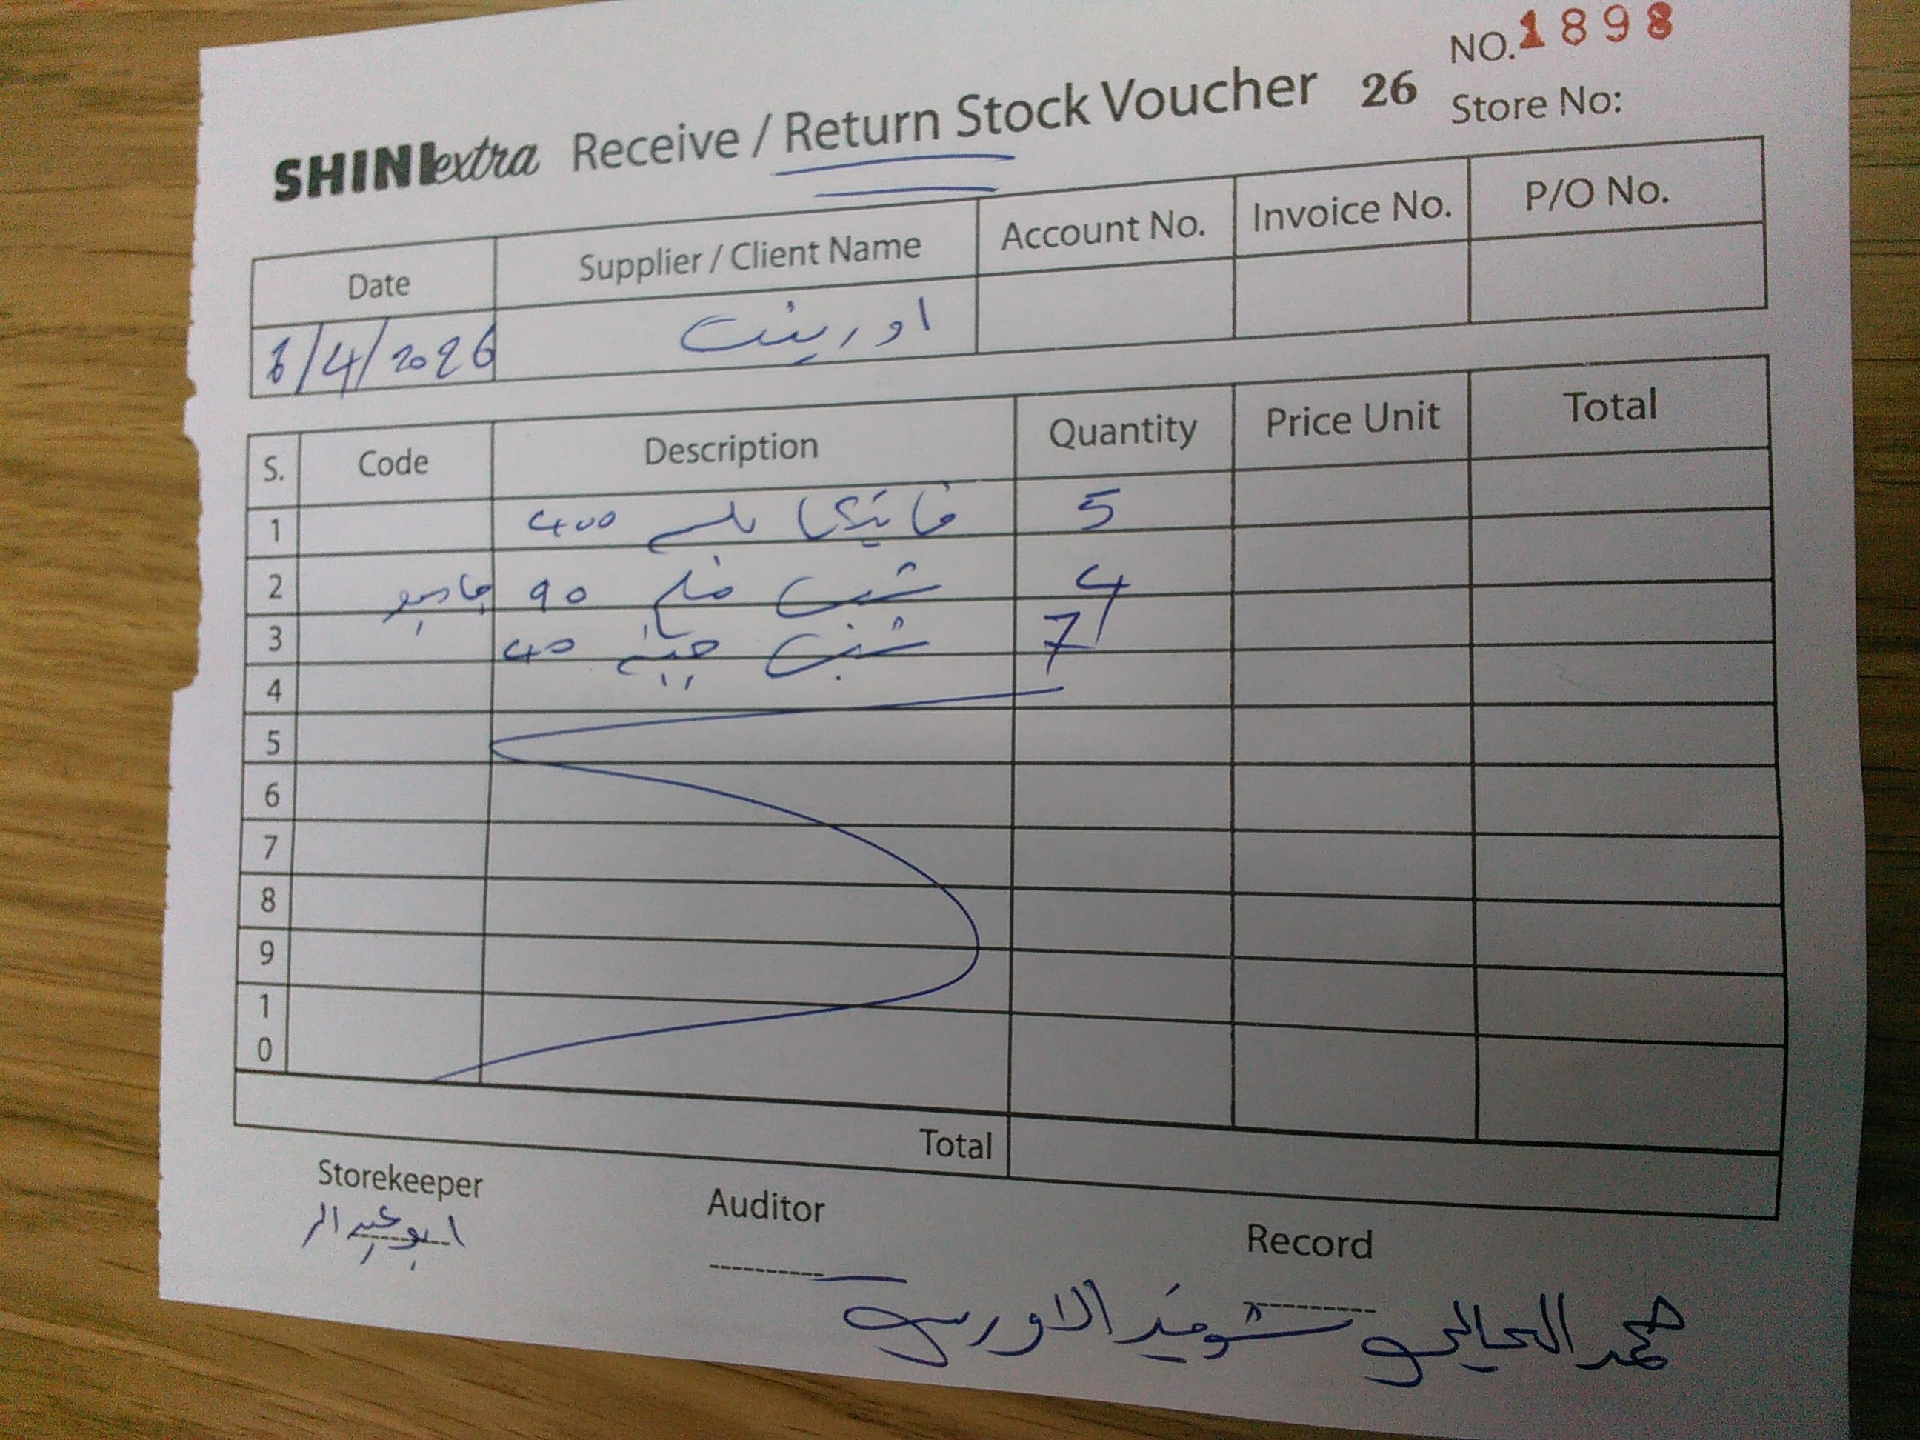 NO. 1898
SHINI extra Receive / Return Stock Voucher 26 Store No:
Date Supplier / Client Name Account No. Invoice No. P/O No.
6/4/2026 اورينت
S. Code Description Quantity Price Unit Total
1 فانتكا بلس 400 5
2 شب فلم 90 جامبو 4
3 شب جبنة 40 7
4
5
6
7
8
9
10
Total
Storekeeper Auditor Record
ابو عبد الر
محمد